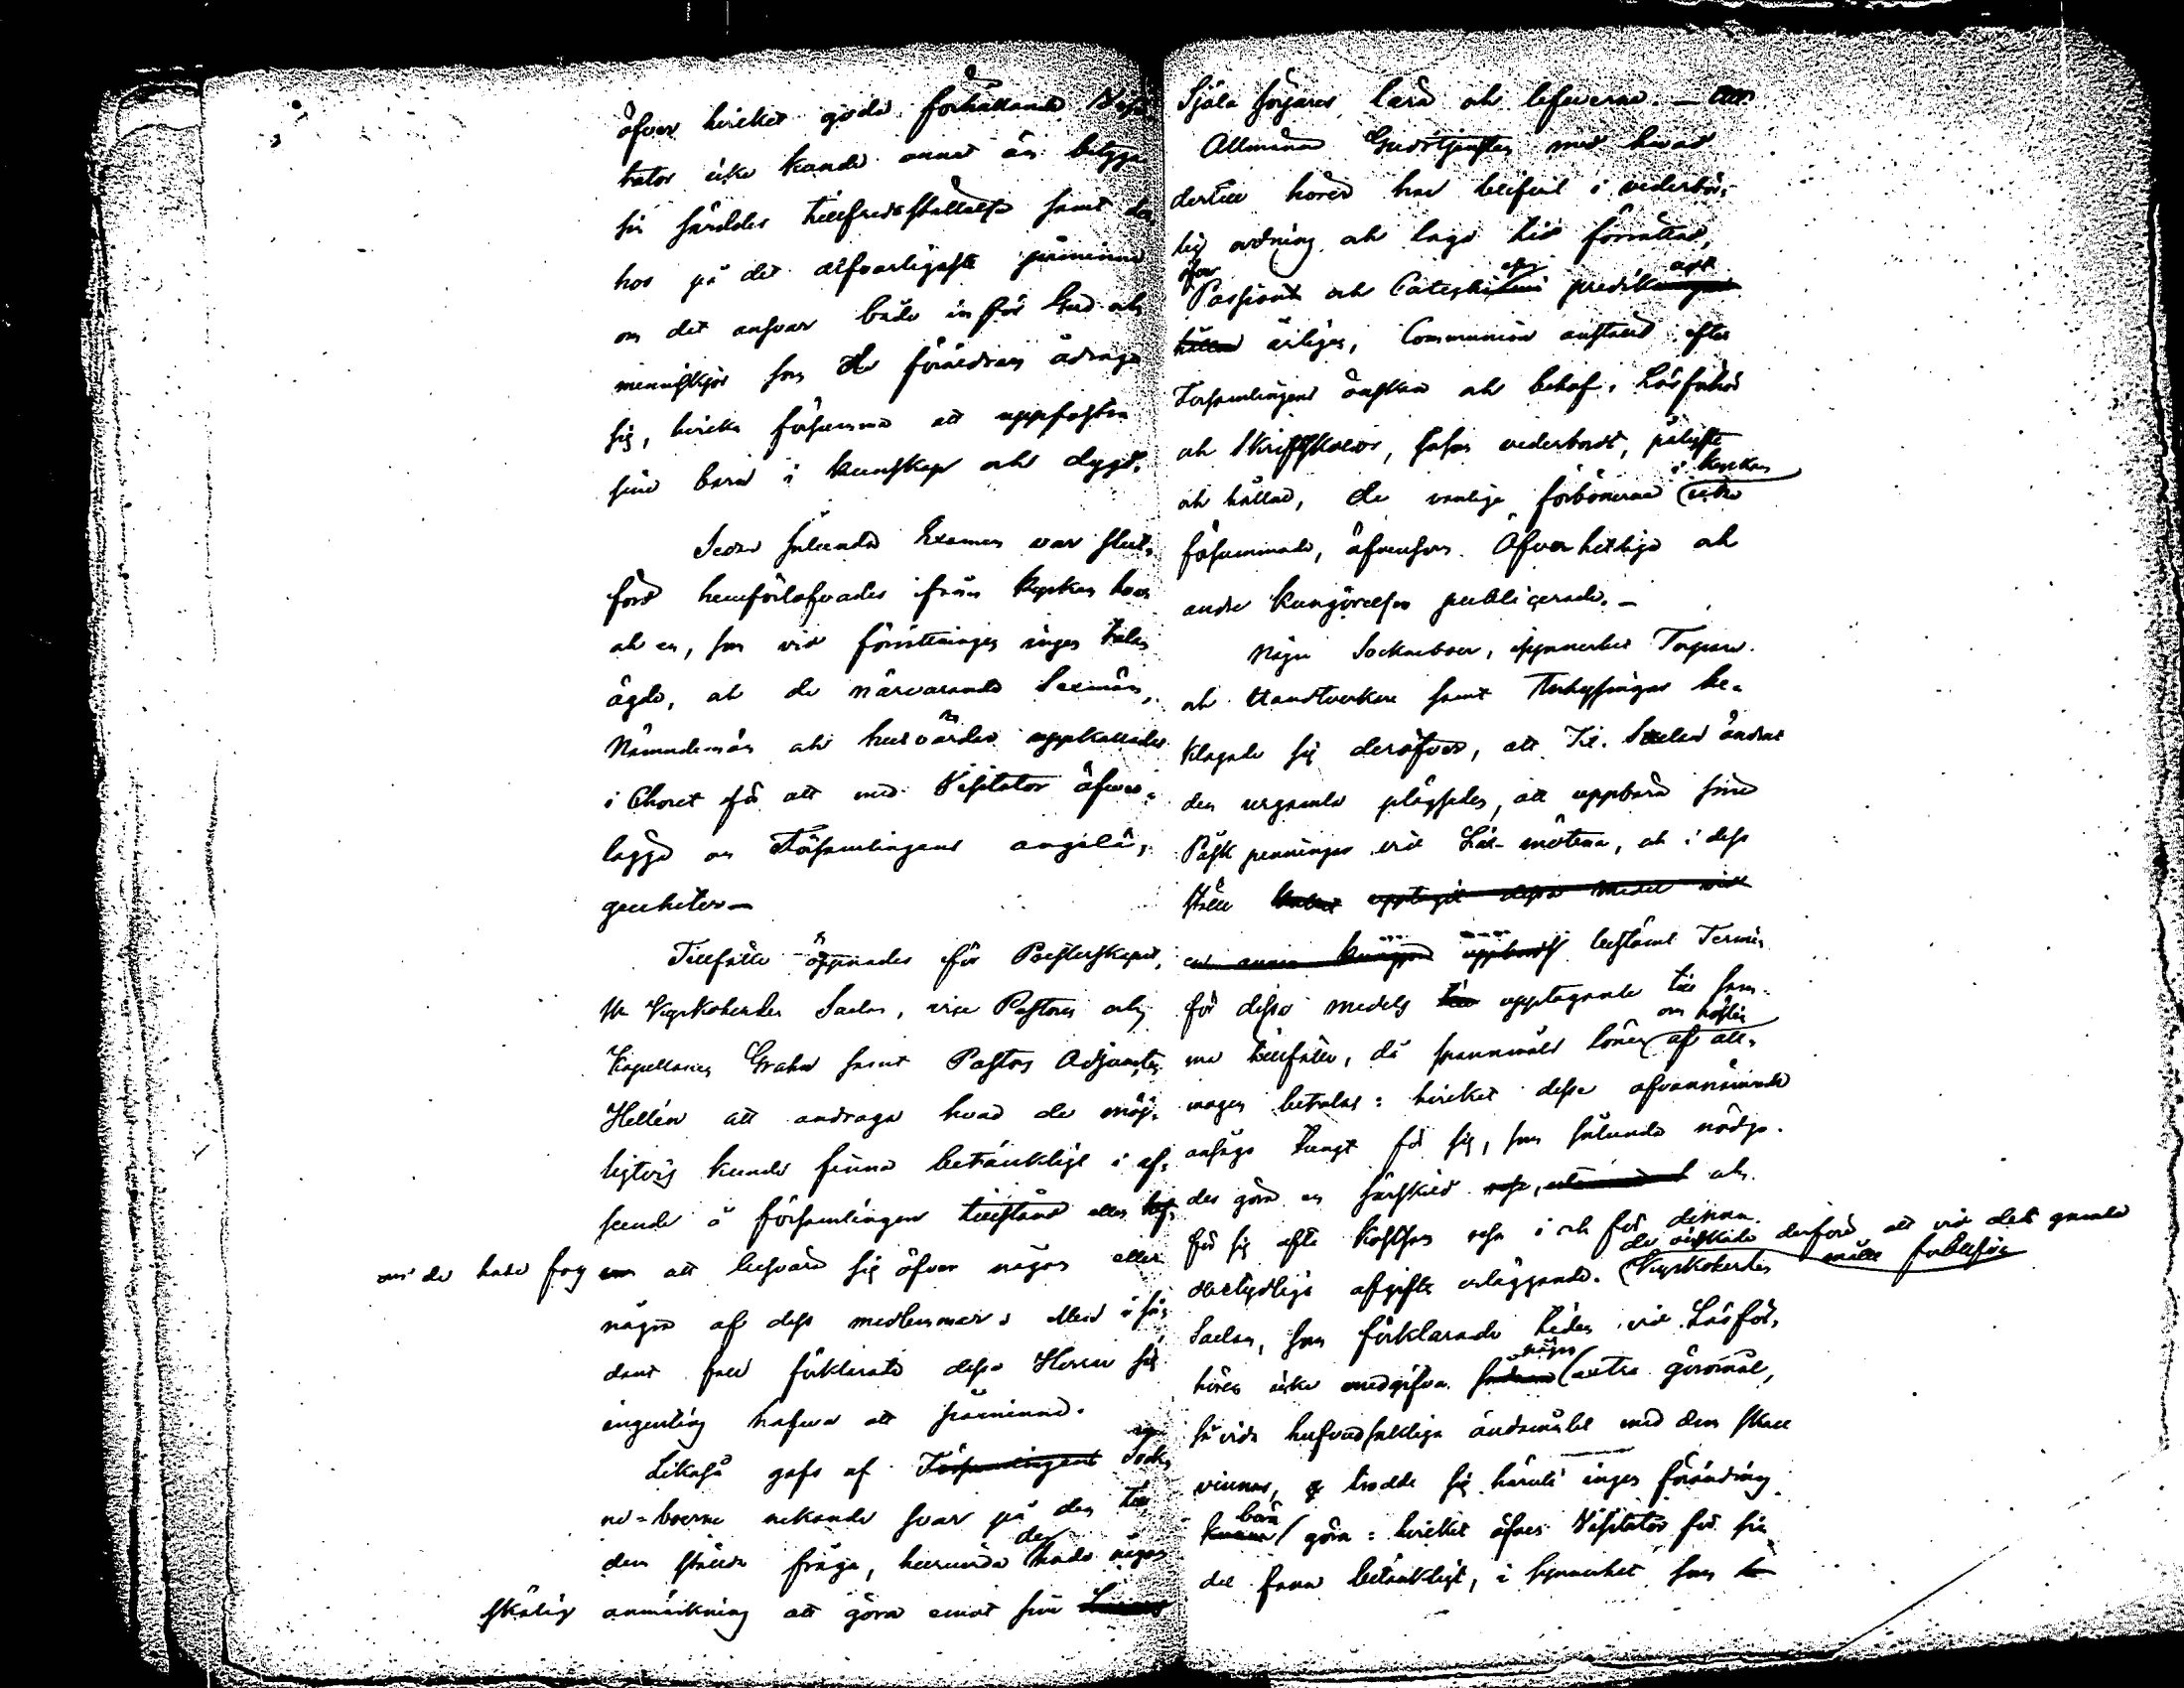 öfver hvilket goda förhållande Visi-
tator icke kunde annat än betyga
sin särdeles tillfredsställelse samt der
hos på det alfvarligaste påminna
om det ansvar både inför Gud och
menniskor som de föräldrar ådraga
sig, hvilka försumma att uppfostra
sina barn i kunskap och dygd.
Sedan sålunda Examen var slut-
förd hemförlofvades ifrån kyrkan hvar
och en, som vid förrättningen ingen talan
ägde, och de närvarande Sexmän,
Nämndemän och husvärdar uppkallades
i Choret för att med Visitator öfver-
lägga om Församlingens angelä-
genheter —
Tillfälle öppnades för Presterskapet,
Hr Kyrkoherden Saelan, vice Pastoren och
Kapellanen Grahn samt Pastors Adjuncten
Hellén att andraga hvad de möj-
ligtvis kunde finna betänkligt i af-
seende å församlingens tillstånd eller
om de hade fog att besvära sig öfver någon eller
några af dess medlemmar. Men i så-
dant fall förklarade dessa Herrar sig
ingenting hafva att påminna.
Likaså gafs af Församlingens Sock-
ne-boerne nekande svar på den till
dem ställda fråga, huruvida de hade någon
skälig anmärkning att göra emot sina
Själa sörjares lära och lefverne. —
Allmänna Gudstjensten med hvad
dertill hörer har blifvit i vederbör-
lig ordning och laga tid förrättad,
öfver Passions och Cateches predikningar
hållna årligen, Communion anstäld efter
Församlingens önskan och behof, Läsförhör
och Skriftskolor, såsom vederbordt, pålyste
och hållne, de vanliga förbönerna i kyrkan icke
försummade, äfvensom Öfverhetliga och
andra Kungörelser publicerade. —
Någre Sockneboer, isynnerhet Torpare
och Handtverkare samt Inhysingar be-
klagade sig deröfver, att Hr. Saelan ändrat
den urgamla plägseden, att uppbära sina
Påsk penningar vid Läs-mötena, och i dess
ställe upptagit dessa medel vid
en annan bestämt Termin
för dessa medels upptagande till sam-
ma tillfälle, då spannmåls lönen om hösten af all-
mogen betalas: hvilket desse ofvannämnde
ansågo tungt för sig, som sålunda nödga-
des göra en särskild resa, och
för sig ofta kostsam resa i och för denna
obetydliga afgifts erläggande. de önskade derföre att vid det gamla
måtte förblifva Kyrkoherden
Saelan, som förklarade tiden vid Läsför-
hören icke medgifva några extra göromål,
så vida hufvudsakliga ändamålet med dem skall
vinnas, trodde sig häruti ingen förändring
böra göra: hvilket äfven Visitator för sin
del fann betänkligt, i synnerhet som